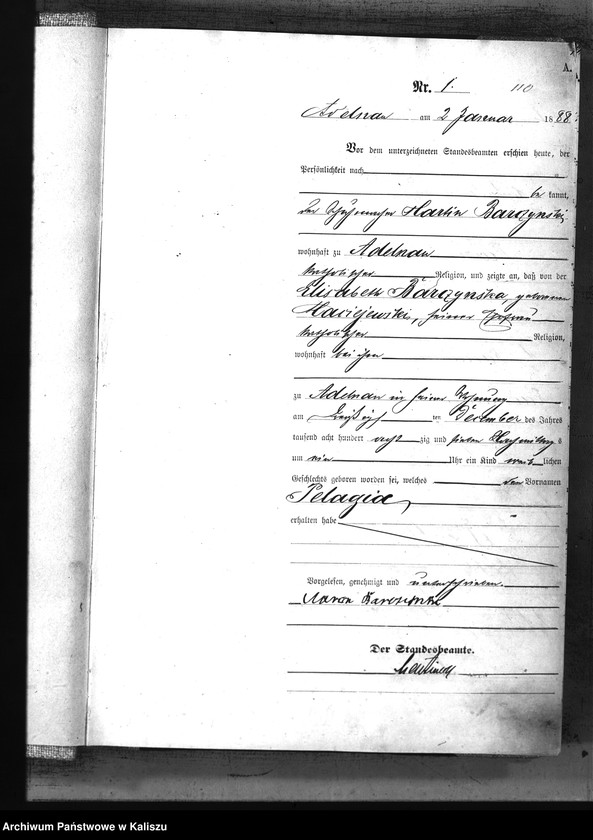 A.
Nr. 1. 110
Adelnau am 2 Januar 1888
Vor dem unterzeichneten Standesbeamten erschien heute, der
Persönlichkeit nach
be kannt,
der Schuhmacher Martin Barczynski
wohnhaft zu Adelnau
katholischer Religion, und zeigte an, daß von der
Elisabeth Barczynska geborenen
Maciejewski, seiner Ehefrau
katholischer Religion,
wohnhaft bei ihm
zu Adelnau in seiner Wohnung
am dreißigsten Dezember des Jahres
tausend acht hundert acht zig und sieben Nachmittags
um vier Uhr ein Kind weib lichen
Geschlechts geboren worden sei, welches den Vornamen
Pelagia
erhalten habe
Vorgelesen, genehmigt und unterschrieben.
Der Standesbeamte.
Archiwum Państwowe w Kaliszu